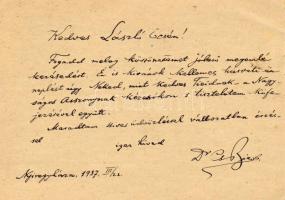 Kedves László Öcsém!
Fogadd meleg köszönetemet jóleső megemlé
kezésedért. Én is kívánok kellemes húsvéti ün-
nepeket úgy Neked, mint kedves Neidnek. a Nagy-
ságos Asszonynak kézcsókom s tiszteletem kife-
jezésével együtt.
Maradtam szives üdvözlettel változatlan érzés-
sel
igaz híved
Nyíregyháza, 1937. III/22.
Dr